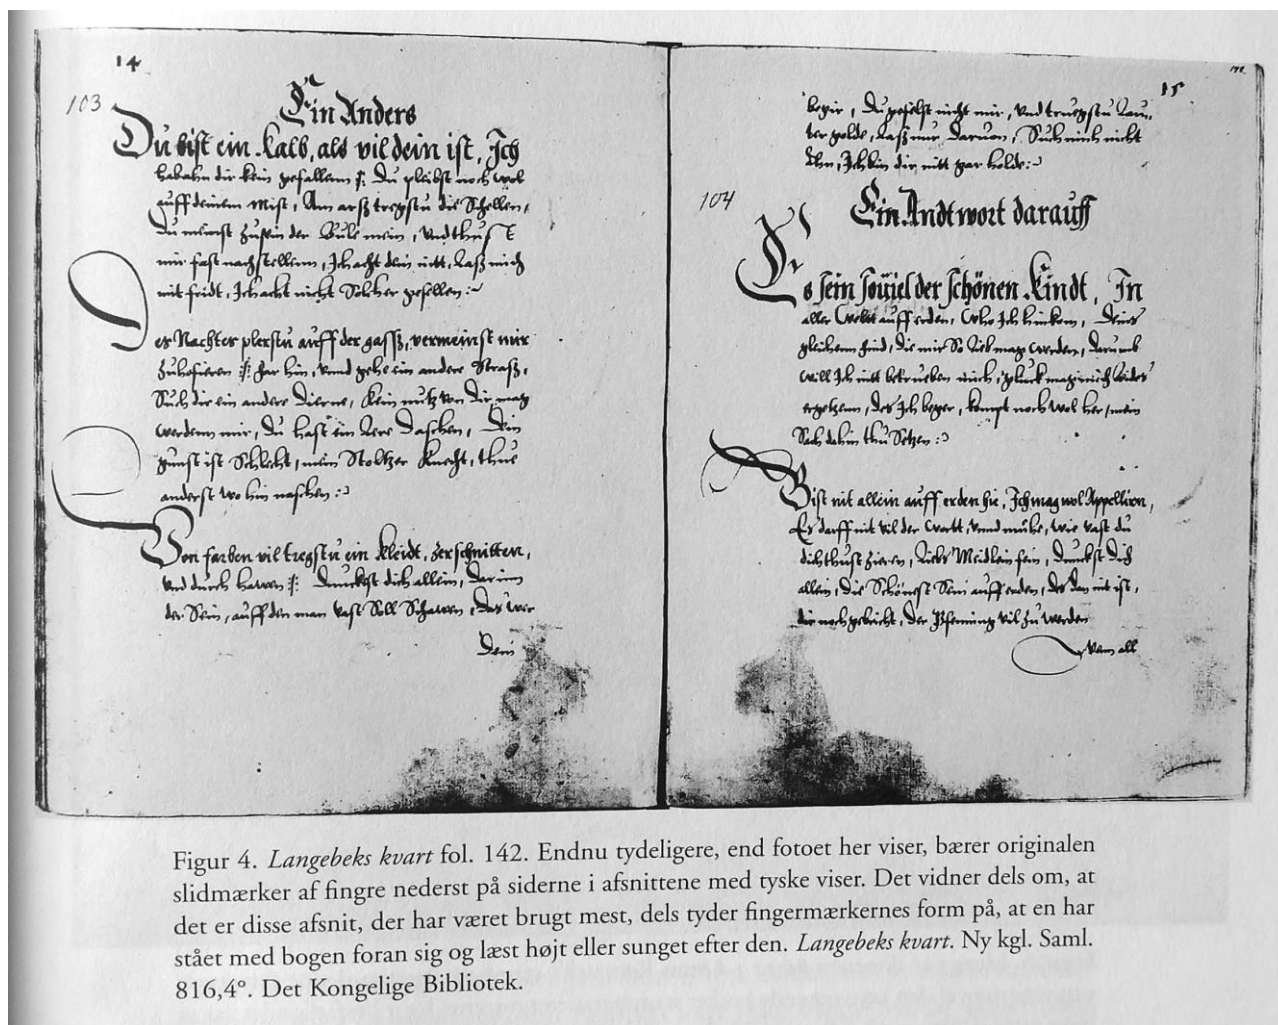 14
103
Ein Anders
Du bist ein Kalb, als vil dein ist, Ich
hab ahn dir kein gefallenn :/: Du pleibst noch wol
auff deinem mist, Am arsz tregstu die Schellen,
Du meinst zu sein der Bule mein, Vnd thust
mir fast nachstellenn, Ich acht dein nitt, Lasz mich
mit fridt, Ich acht nicht Solcher gesellen :~
Des Nachtes plerstu auff der gassz, vermeinst mir
zu hofieren :/: far hin, vnnd gehe ein andere Strasz,
Such dir ein andere Dierne, Kein nutz von dir mag
werdenn mir, Du hast ein Lere Daschen, Dein
gunst ist Schlecht, mein Stoltzer Knecht, thue
anderst wo hin naschen :~
Von farben vil tregstu ein Kleidt, zerschnitten,
vnd durch hawen :/: Dunckst dich allein, Dar inn
der Sein, auff den man vast Soll Schawen, Das wer
Dein
142
15
beger, Du gefelst nicht mir, vnd truegstu Lau-
ter golde, Lasz nur daruon, Such mich nicht
Ich bin dir nitt gar holde :~
104
Ein Andtwort darauff
Es sein souiel der schönen Kindt, In
aller Weltt auff erden, Who Ich hinkom, Deins
gleichenn find, die mir So lieb mag werden, darumb
will Ich nitt betrueben mich, gluck mag mich Leides
ergetzenn, des Ich beger, kompt noch wol her, mein
Sach dahin thu Setzen :~
Bist nit allein auff erden hie, Ich mag wol Appelliren,
Es darff nit vil der wortt, vnnd mühe, wie vast du
dich thust zieren, Liebs Meidlein fein, Dunckst Dich
allein, die Schönest Sein auff erden, des dan nit ist,
dir noch gebricht, Der Pfenning vil zu werden
Vom all
Figur 4. Langebeks kvart fol. 142. Endnu tydeligere, end fotoet her viser, bærer originalen
slidmærker af fingre nederst på siderne i afsnittene med tyske viser. Det vidner dels om, at
det er disse afsnit, der har været brugt mest, dels tyder fingermærkernes form på, at en har
stået med bogen foran sig og læst højt eller sunget efter den. Langebeks kvart. Ny kgl. Saml.
816,4°. Det Kongelige Bibliotek.